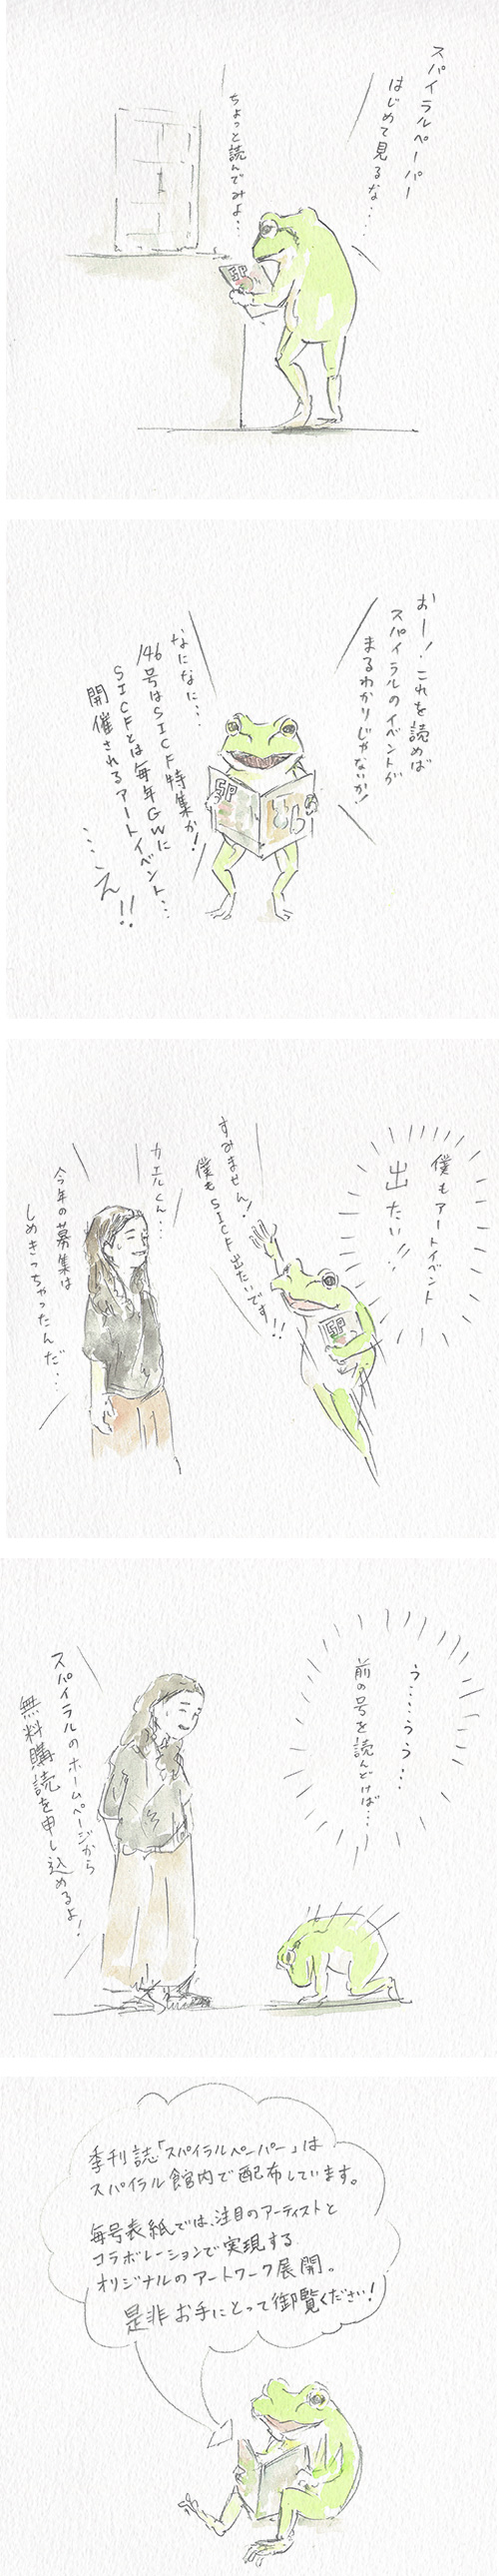 スパイラルペーパー
はじめて見るな…
ちょっと読んでみよ…
SP
おー！これを読めば
スパイラルのイベントが
まるわかりじゃないか！
なになに…
146号はSICF特集か！
SICFとは毎年GWに
開催されるアートイベント…
…え!!
SP
僕もアートイベント
出たい!!
すみません！
僕もSICF出たいです!!
SP
カエルくん…
今年の募集は
しめきっちゃったんだ…
う…うう…
前の号を読んどけば…
スパイラルのホームページから
無料購読を申し込めるよ！
季刊誌「スパイラルペーパー」は
スパイラル館内で配布しています。
毎号表紙では、注目のアーティストと
コラボレーションで実現する
オリジナルのアートワーク展開。
是非お手にとって御覧ください！